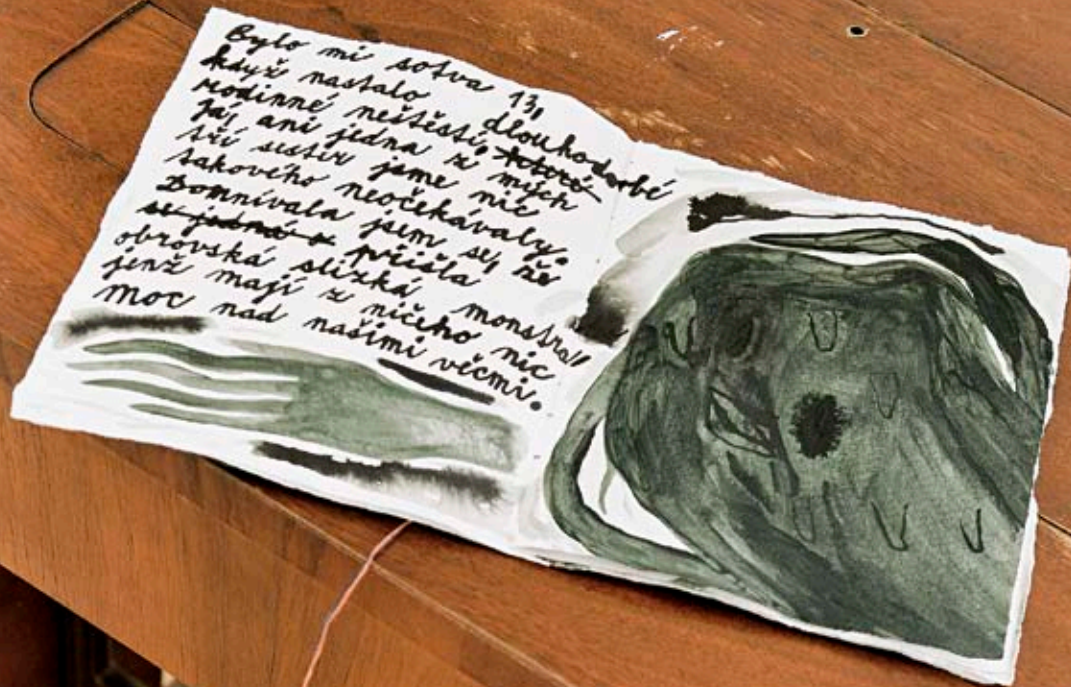 Bylo mi sotva 13,
když nastalo dlouhodobé
rodinné neštěstí, které
já, ani jedna z mých
tří sester jsme nic
takového neočekávaly.
Domnívala jsem se, že
se jedná o přišla
obrovská slizká monstra,
jenž mají z ničeho nic
moc nad našimi věcmi.